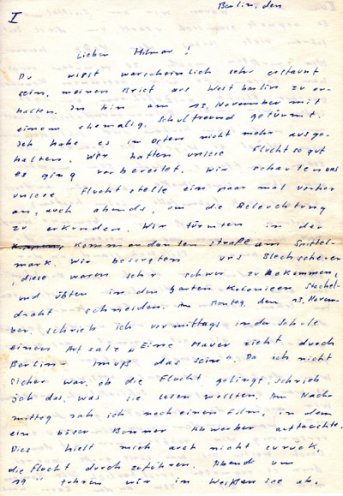 I
Berlin, den
Lieber Hilmar!
Du wirst warscheinlich sehr erstaunt
sein, meinen Brief aus West berlin zu er-
halten. Ich bin am 13. November mit
einem ehemalig. Schulfreund getürmt.
Ich habe es im Osten nicht mehr ausge-
halten. Wir hatten unsere Flucht so gut
es ging vorbereitet. Wir schauten uns
unsere Fluchtstelle ein paar mal vorher
an, auch abends, um die Beleuchtung
zu erkunden. Wir türmten in der
Kommandanten straße am Spittel-
markt. Wir besorgten uns Blechscheren
(diese waren sehr schwer zu bekommen)
und übten in den Garten Kolonieen Stachel-
draht schneiden. Am Montag, den 13. Novem-
ber, schrieb ich vormittags in der Schule
einen Aufsatz „Eine Mauer zieht durch
Berlin - muß das sein". Da ich nicht
sicher war, ob die Flucht gelingt, schrieb
ich das, was sie lesen wollten. Am Nach-
mittag sah ich noch einen Film, in dem
ein böser Bonner Abwerber auftauchte.
Dies hielt mich auch nicht zurück,
die Flucht durchzuführen. Abend um
19 fuhren wir in Weißensee ab.